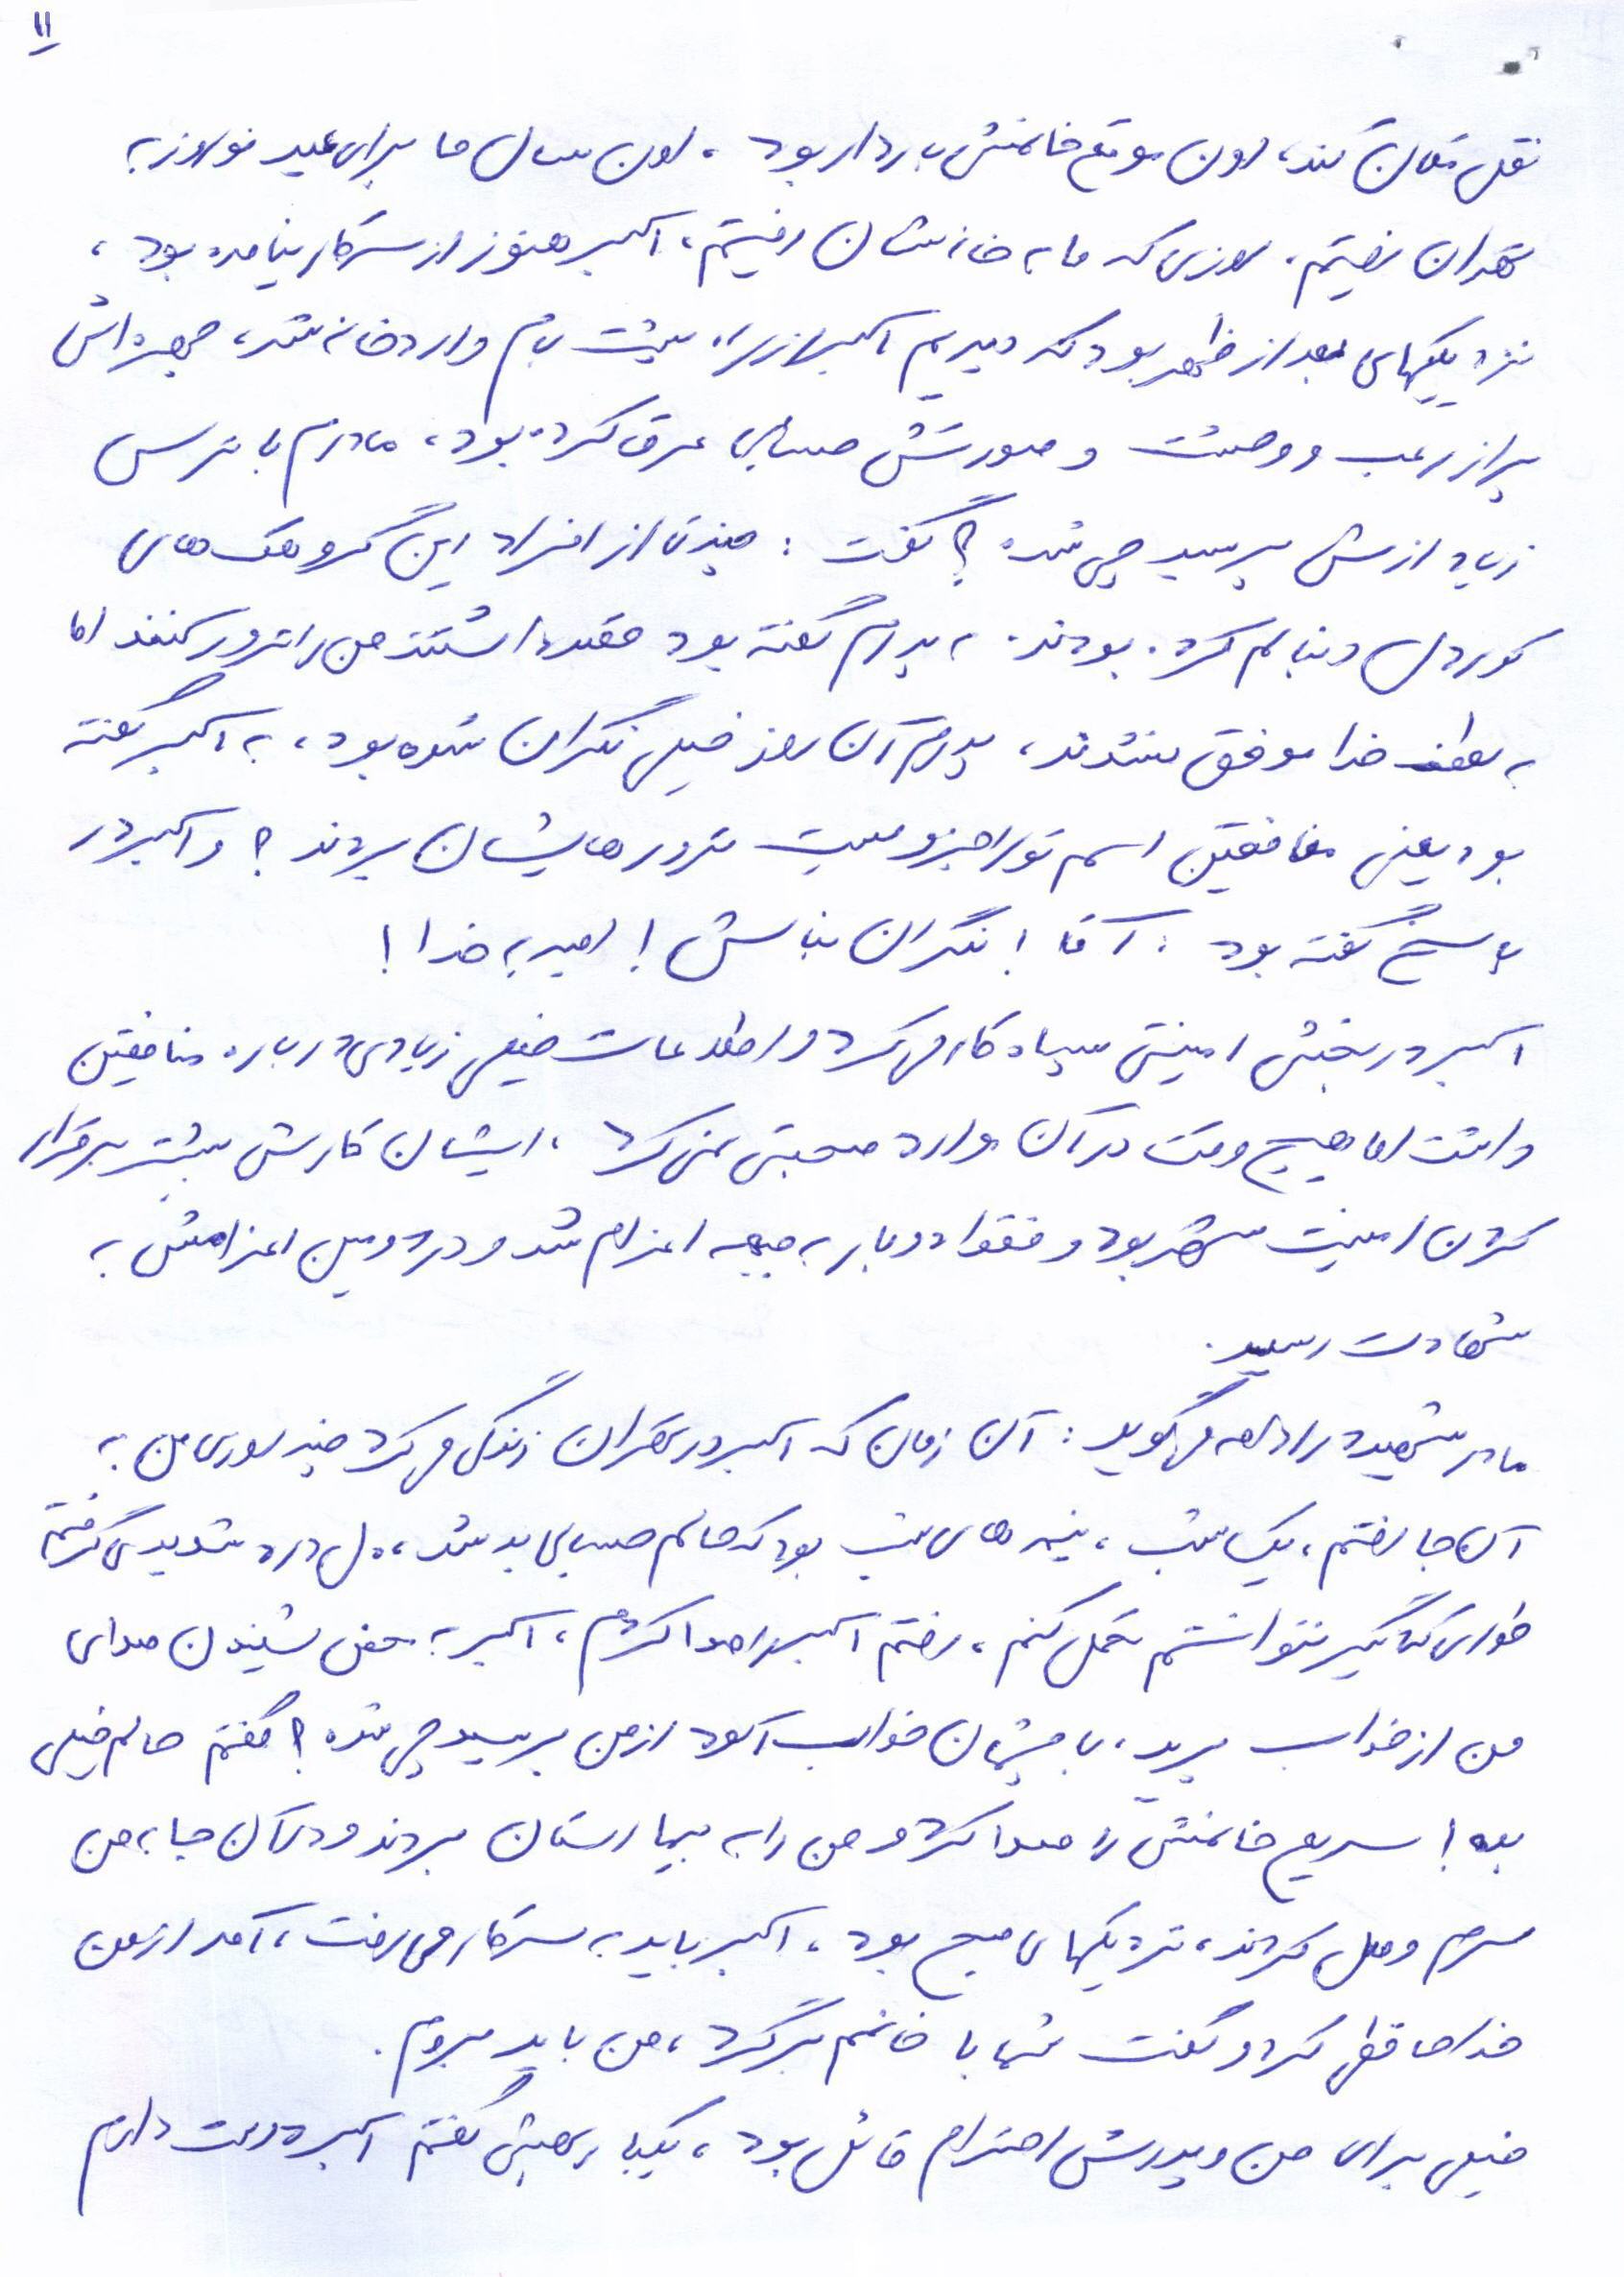 ۱۱
نقل مکان کند، اون موقع خانمش باردار بود، اون سال ما برای عید نوروز به
تهران رفتیم. روزی که ما به خانه‌شان رفتیم، اکبر هنوز از سر کار نیامده بود،
نزدیکیهای بعد از ظهر بود که دیدیم اکبر از راه پشت بام وارد خانه شد، چهره‌اش
پر از رعب و وحشت و صورتش حسابی عرق کرده بود، مادرم با ترس
زیاد ازش پرسید چی شده؟ گفت: چند تا از افراد این گروهک‌های
کوردل دنبالم کرده بودند. به پدرم گفته بود قصد داشتند من را ترور کنند اما
به لطف خدا موفق نشدند، پدرم آن روز خیلی نگران شده بود، به اکبر گفته
بود یعنی منافقین اسم تو را جزو لیست ترورهایشان بردند؟ و اکبر در
پاسخ گفته بود: آقا! نگران نباش! امید به خدا!
اکبر در بخش امنیتی سپاه کار می‌کرد و اطلاعات خیلی زیادی درباره منافقین
داشت اما هیچ وقت در آن موارد صحبتی نمی‌کرد، ایشان کارش بیشتر برقرار
کردن امنیت شهر بود و فقط دوبار به جبهه اعزام شد و در دومین اعزامش به
شهادت رسید.
مادر شهید در ادامه می‌گوید: آن زمان که اکبر در تهران زندگی می‌کرد چند روزی من به
آن جا رفتم، یک شب، نیمه‌های شب بود که حالم حسابی بد شد، دل درد شدیدی گرفتم
طوری که دیگر نتوانستم تحمل کنم، رفتم اکبر را صدا کردم، اکبر به محض شنیدن صدای
من از خواب پرید، با چشمان خواب آلود از من پرسید چی شده؟ گفتم حالم خیلی
بده! سریع خانمش را صدا کرد و من را به بیمارستان بردند و در آن جا به من
سرم وصل کردند، نزدیکیهای صبح بود، اکبر باید به سر کار می‌رفت، آمد از من
خداحافظی کرد و گفت شما با خانمم برگرد، من باید بروم.
خیلی برای من و پدرش احترام قائل بود، یکبار بهش گفتم اکبر دوست دارم